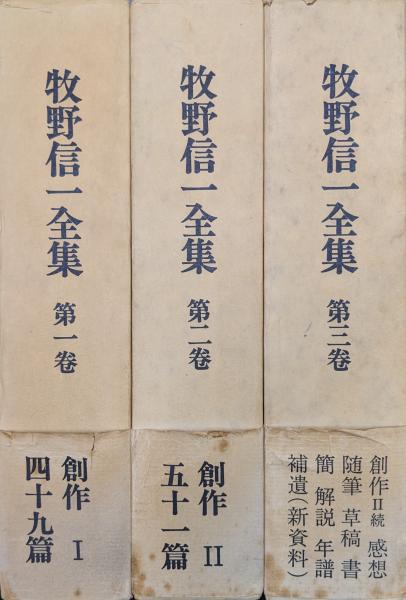 牧野信一全集 第一卷
創作 I
四十九篇
牧野信一全集 第二卷
創作 II
五十一篇
牧野信一全集 第三卷
創作II続 感想
随筆 草稿 書
簡 解説 年譜
補遺(新資料)